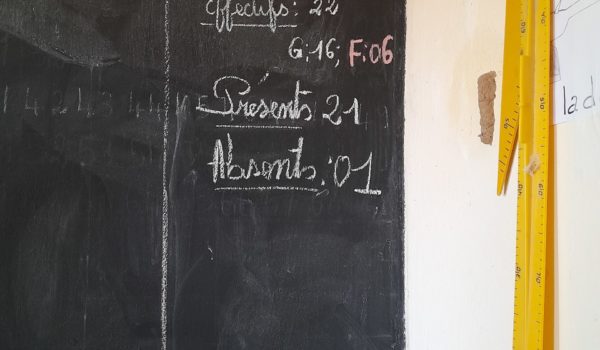 Effectifs: 22
G:16; F:06
Présents 21
Absents: 01
lad